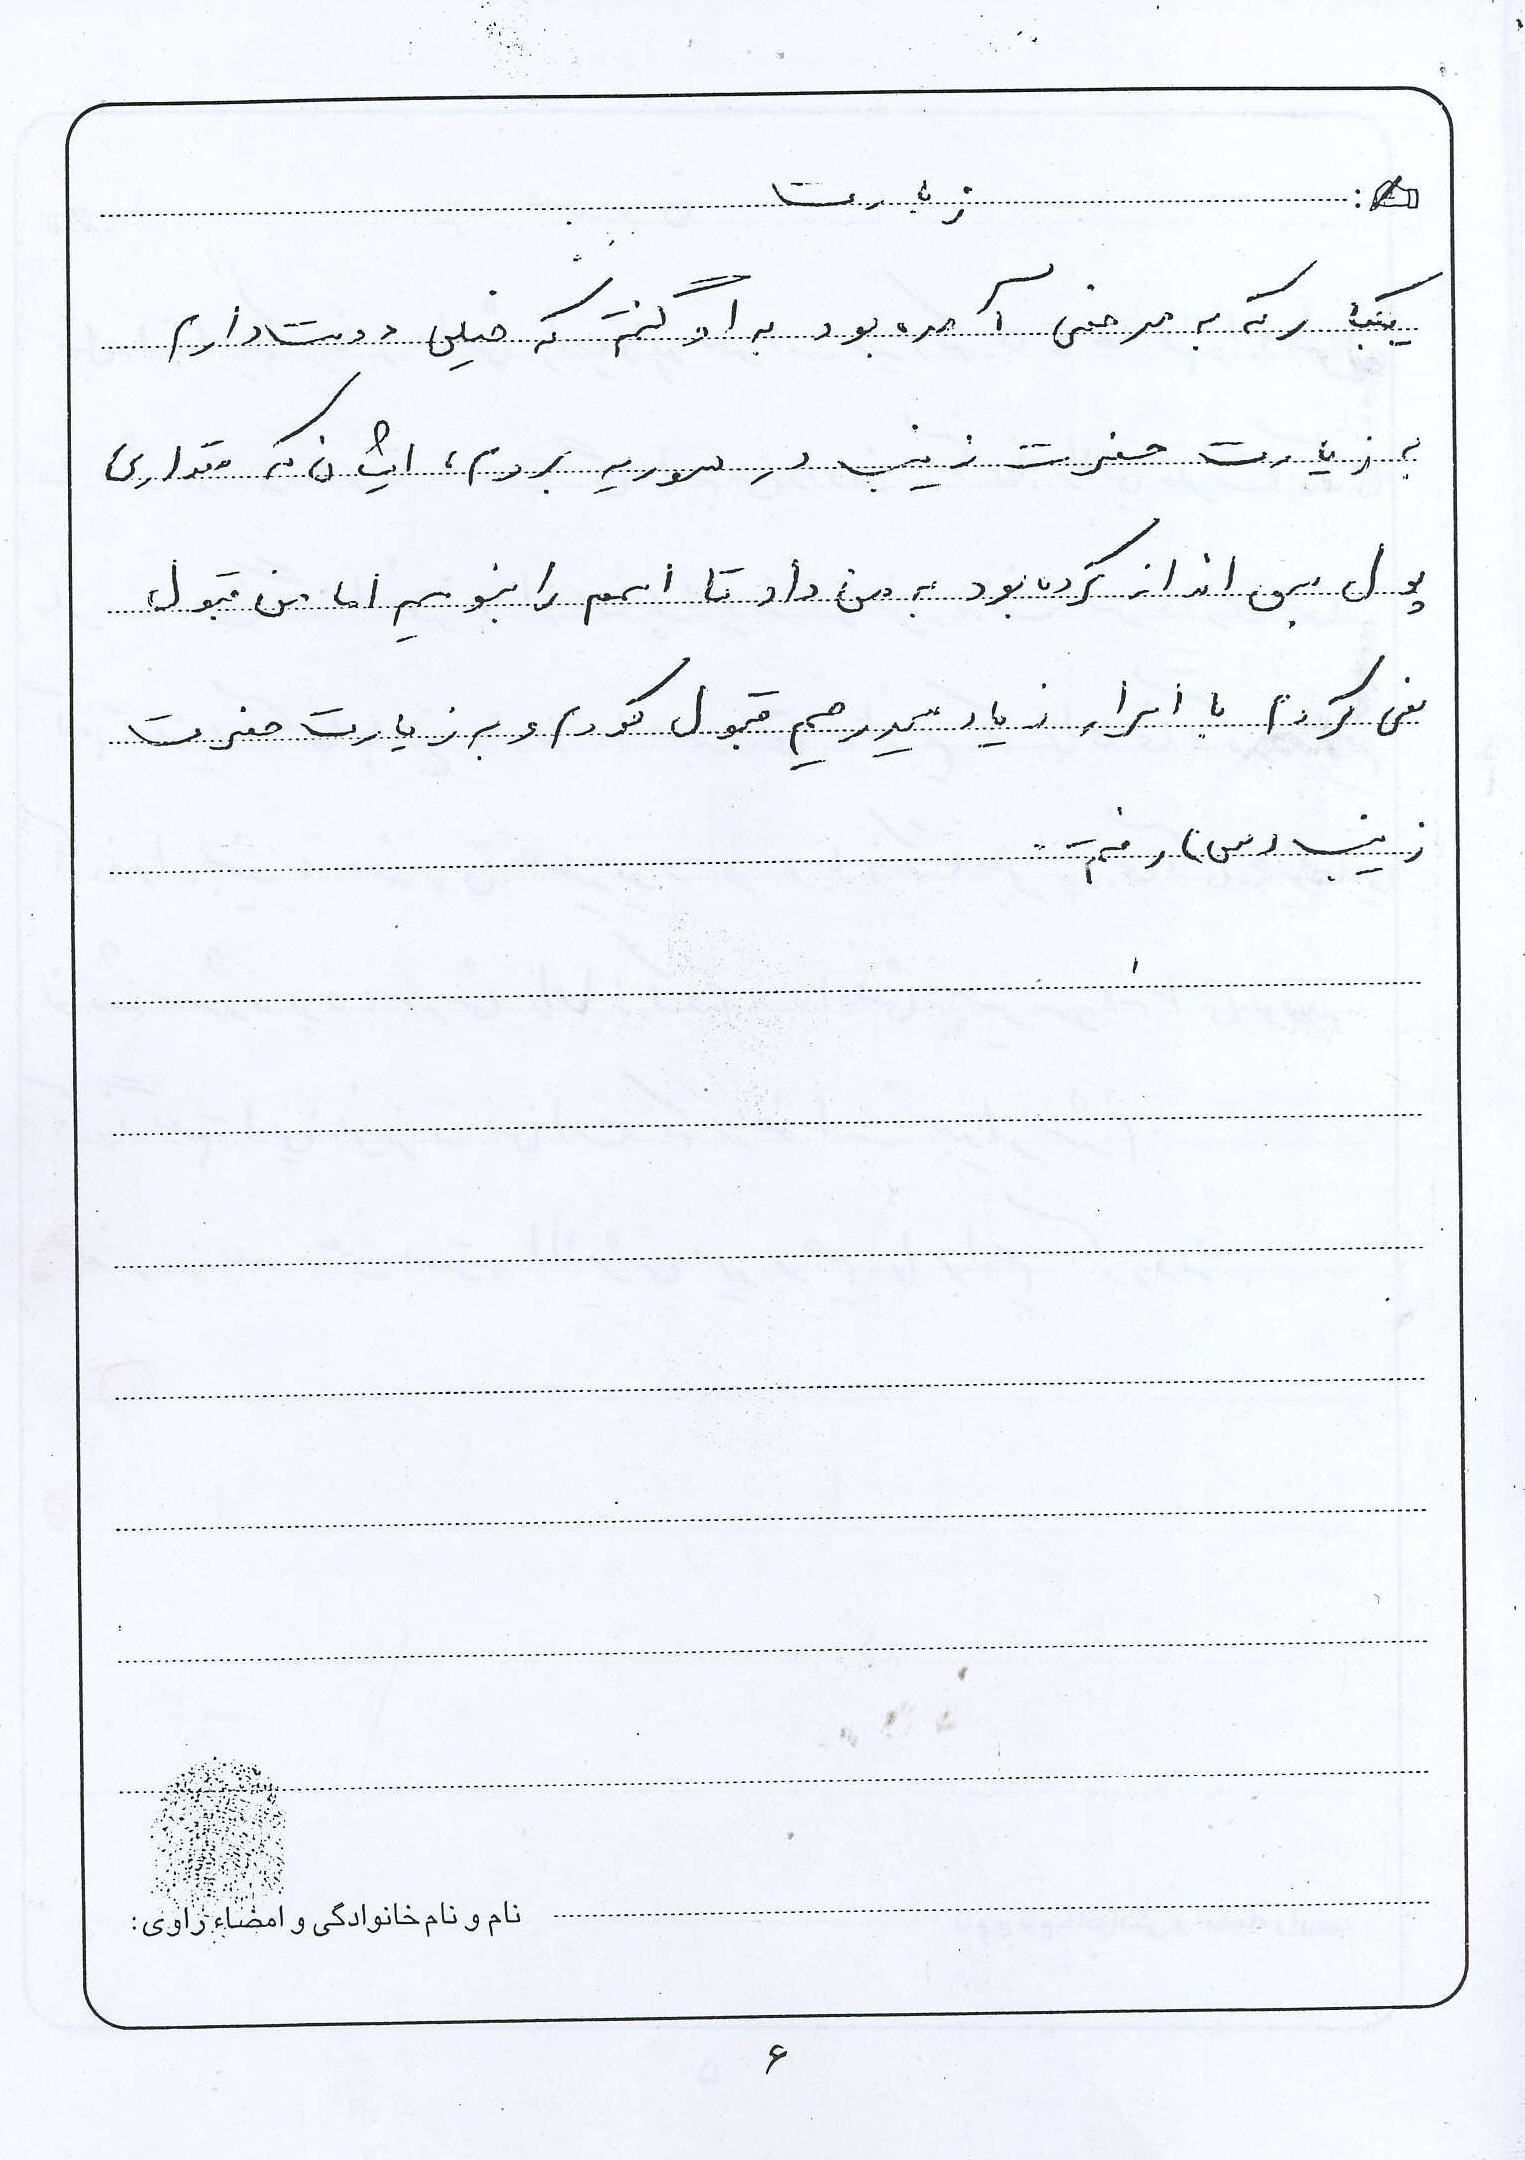 زیارت
یکبار که به مرخصی آمده بود به او گفتم که خیلی دوست دارم
به زیارت حضرت زینب در سوریه بروم، ایشان که مقداری
پول پس انداز کرده بود به من داد تا اسمم را بنویسم اما من قبول
نمی کردم با اسرار زیاد سید رحیم قبول کردم و به زیارت حضرت
زینب (س) رفتم.
نام و نام خانوادگی و امضاء راوی:
۶